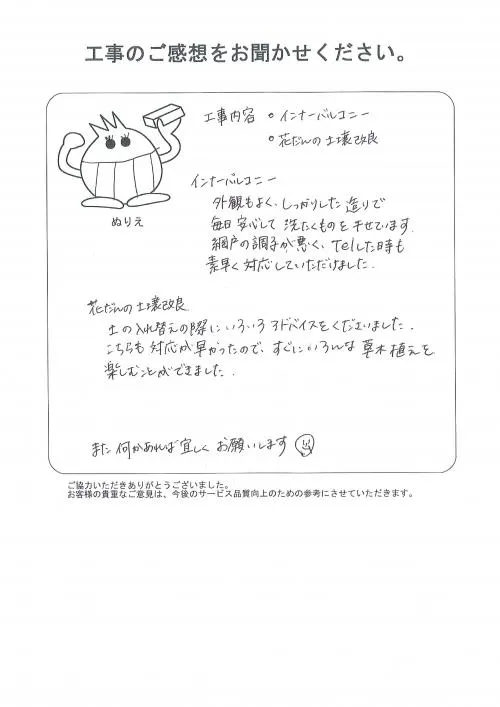 工事のご感想をお聞かせください。
工事内容 ・インナーバルコニー
・花だんの土壌改良
ぬりえ
インナーバルコニー
外観もよく、しっかりした造りで
毎日安心して洗たくものを干せています。
網戸の調子が悪く、telした時も
素早く対応していただけました。
花だんの土壌改良
土の入れ替えの際にいろいろアドバイスをくださいました。
こちらも対応が早かったので、すぐにいろんな草木植えを
楽しむことができました。
また何かあれば宜しくお願いします
ご協力いただきありがとうございました。
お客様の貴重なご意見は、今後のサービス品質向上のための参考にさせていただきます。